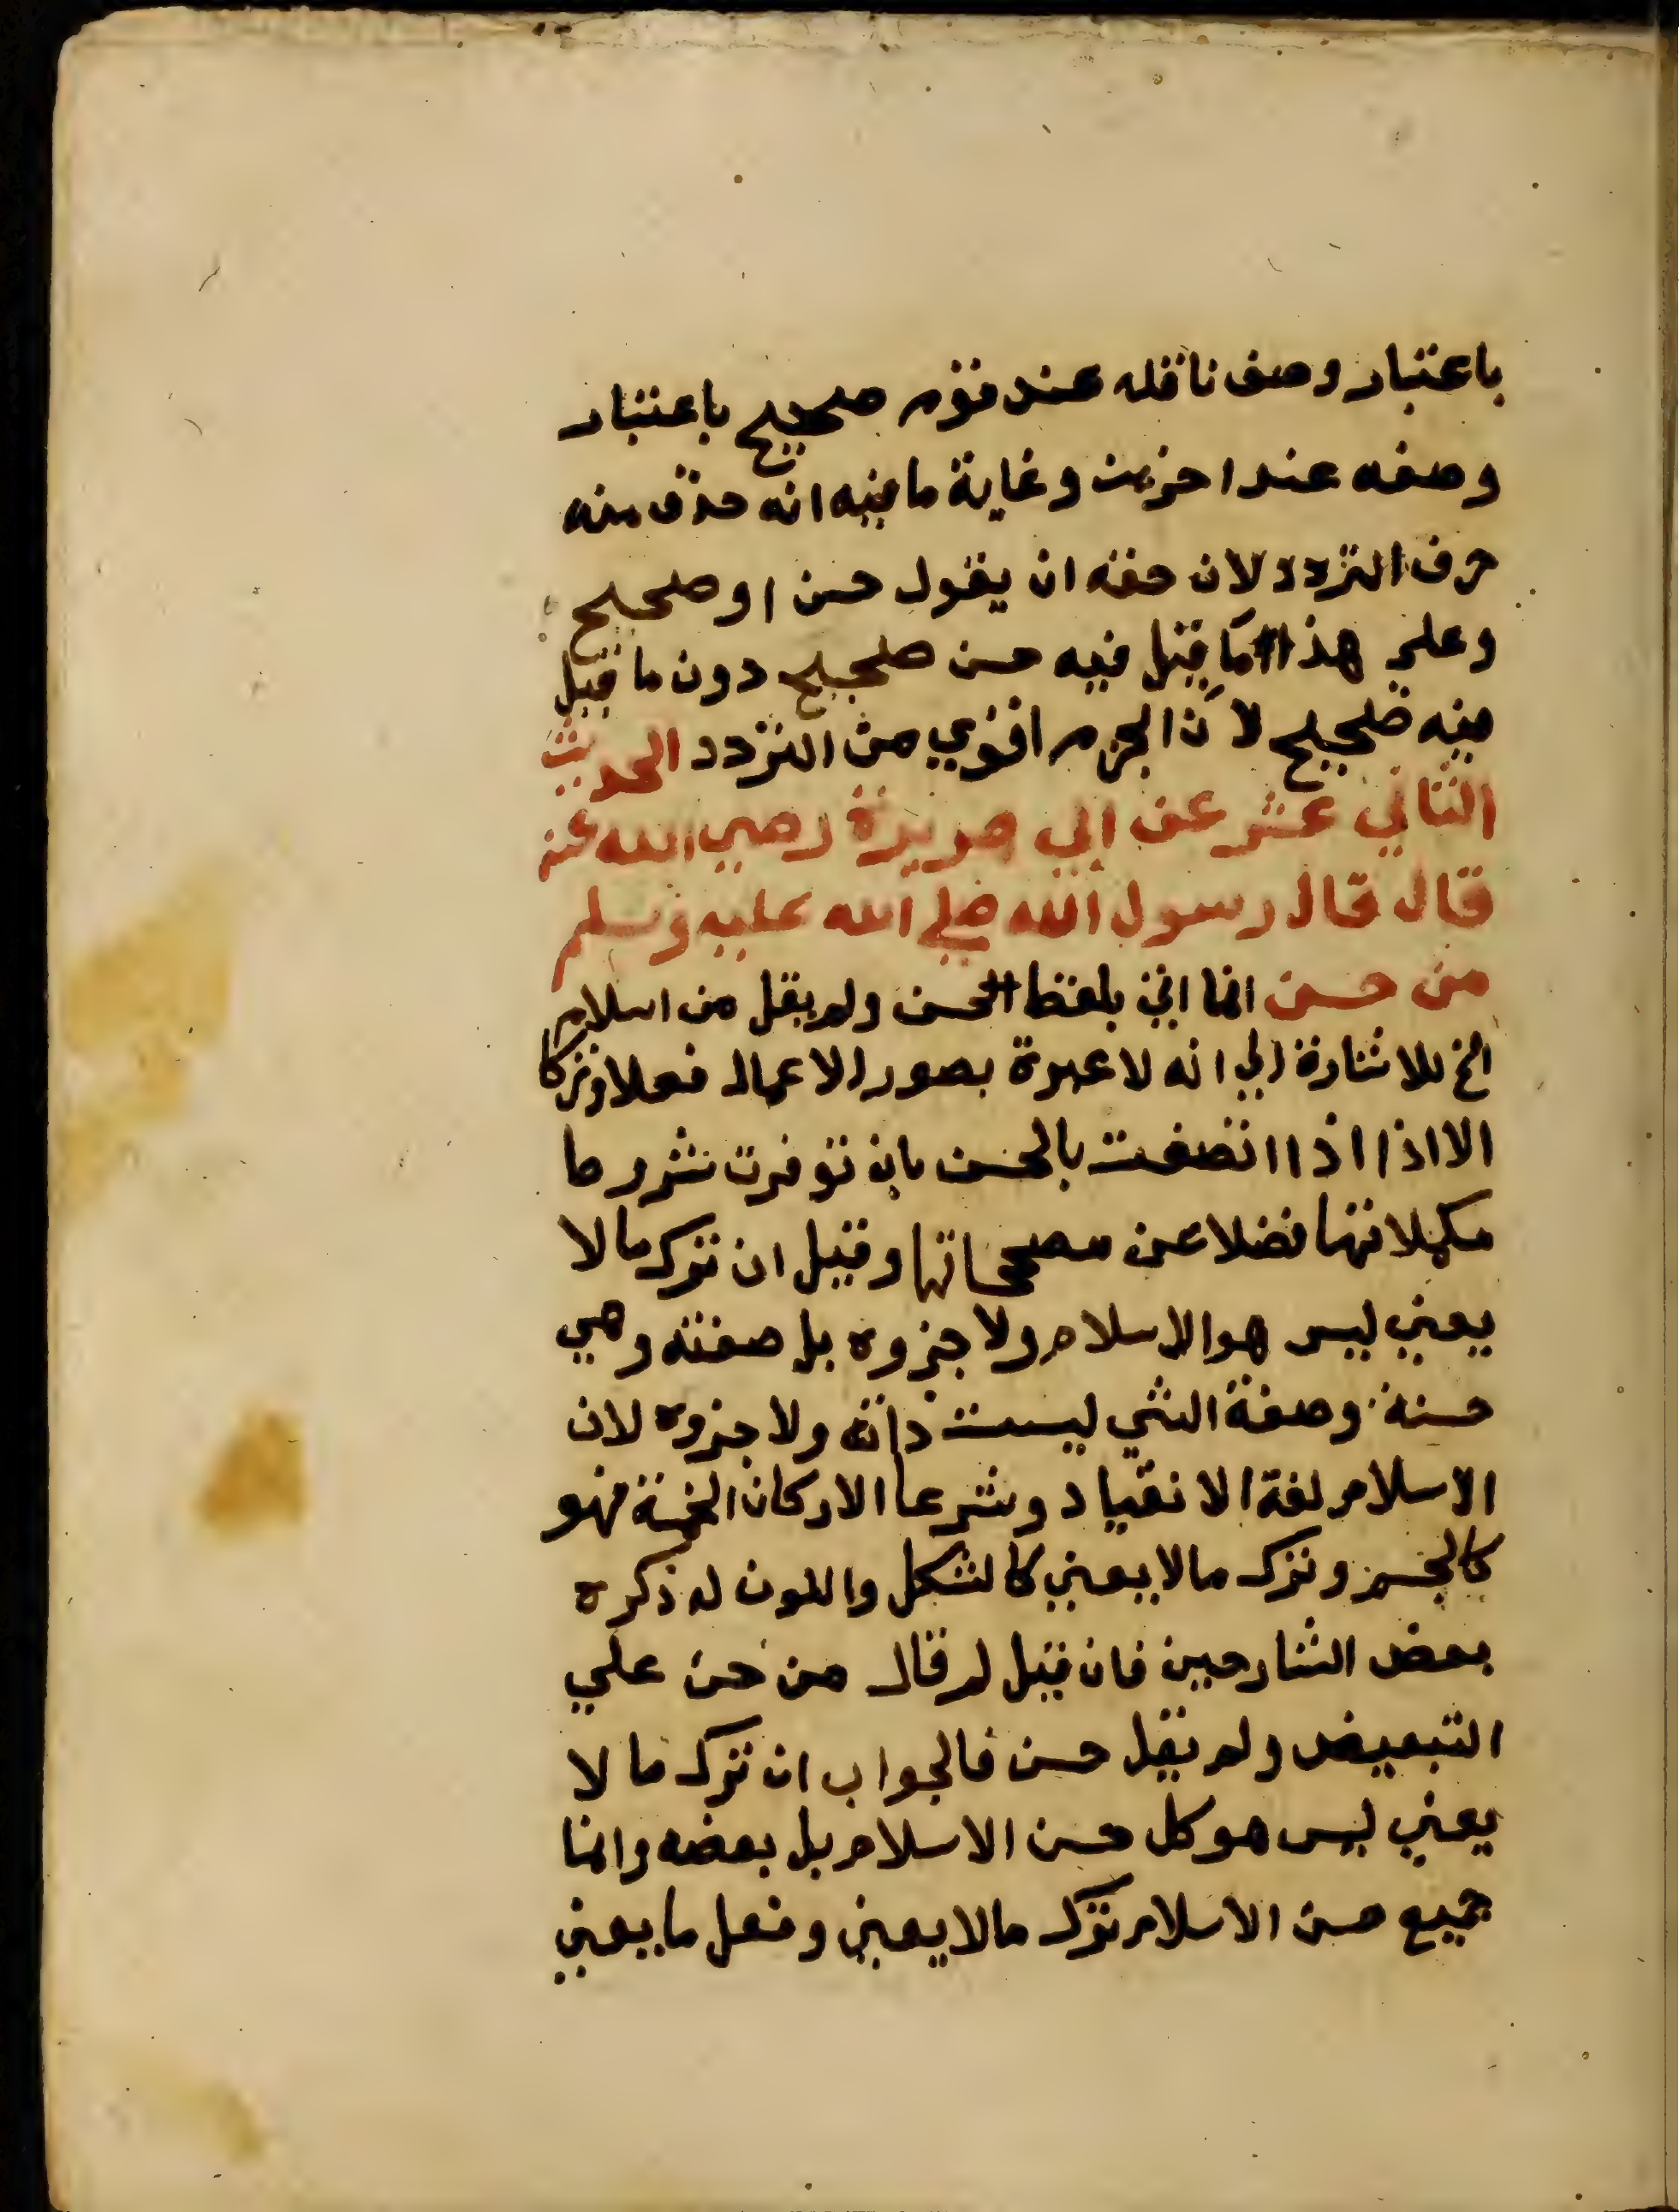 باعتبار وصف ناقله عند قوم صحيح باعتبار
وصفه عند اخرين وغاية ما فيه انه حذف منه
حرف التردد لان حقه ان يقول حسن او صحيح
وعلى هذا ما قيل فيه حسن صحيح دون ما قيل
فيه صحيح لان الجزم اقوي من التردد الحديث
الثاني عشر عن ابي هريرة رضي الله عنه
قال قال رسول الله صلي الله عليه وسلم
من حسن انما اتي بلفظ الحسن ولم يقل من اسلام
الخ للاشارة الي انه لا عبرة بصور الاعمال فعلا وتركا
الا اذا اذا اتصفت بالحسن بان توفرت شروط
مكملاتها فضلا عن مصححاتها وقيل ان ترك ما لا
يعني ليس هو الاسلام ولا جزوه بل صفته وهي
حسنة وصفة الشي ليست ذاته ولا جزوه لان
الاسلام لغة الانقياد وشرعا الاركان الخمسة فهو
كالجسم وترك ما لا يعني كالشكل واللون له ذكره
بعض الشارحين فان قيل لم قال من حسن علي
التبعيض ولم يقل حسن فالجواب ان ترك ما لا
يعني ليس هو كل حسن الاسلام بل بعضه وانما
جميع حسن الاسلام ترك ما لا يعني وفعل ما يعني